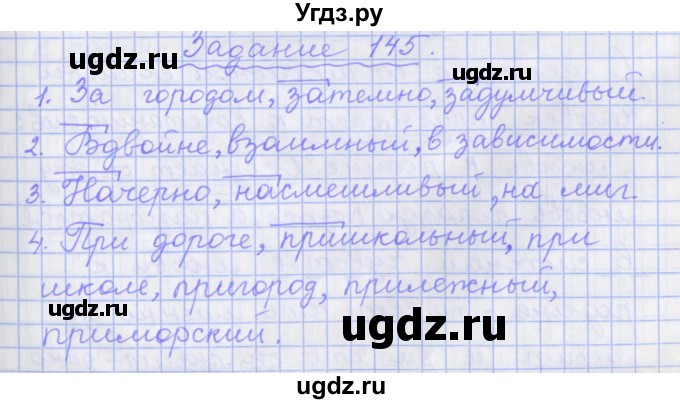 Угдз.ру
Задание 145.
1. За городом, затемно, задумчивый.
2. Вдвойне, взаимный, в зависимости.
3. Начерно, насмешливый, на миг.
4. При дороге, пришкольный, при
школе, пригород, прилежный,
приморский.
ugdz.ru
ugdz.ru
ugdz.ru
ugdz.ru
ugdz.ru
ugdz.ru
ugdz.ru